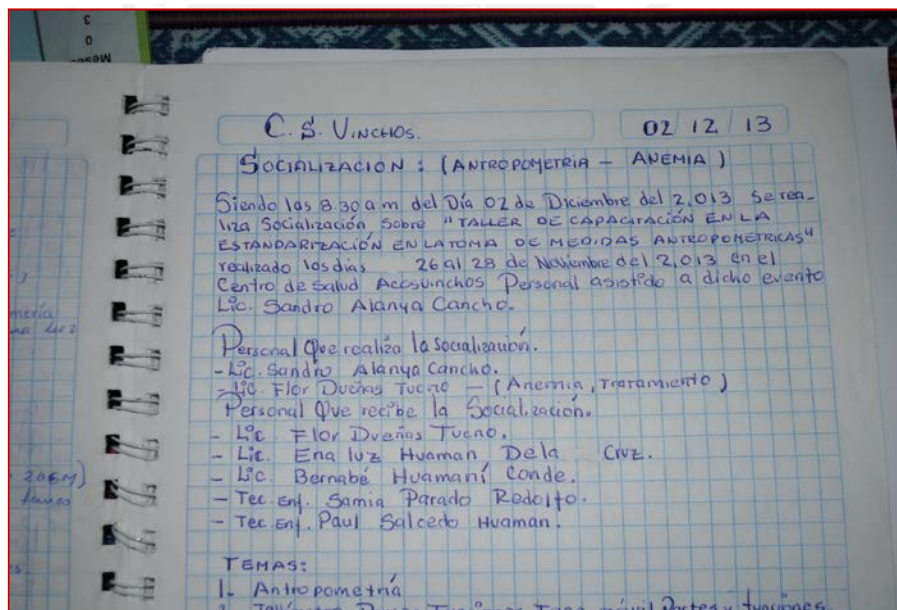 3
0
Meses
C. S. VINCHOS.
02/12/13
SOCIALIZACION : (ANTROPOMETRIA - ANEMIA)
Siendo las 8.30 a.m. del Día 02 de Diciembre del 2,013 Se rea-
liza Socialización Sobre "TALLER DE CAPACITACIÓN EN LA
ESTANDARIZACIÓN EN LA TOMA DE MEDIDAS ANTROPOMETRICAS"
realizado los días 26 al 28 de Noviembre del 2,013 en el
Centro de Salud Acosvinchos Personal asistido a dicho evento
Lic. Sandro Alanya Cancho.
Personal Que realiza la socialización.
- Lic. Sandro Alanya Cancho.
- Lic. Flor Dueñas Tueno - (Anemia, Tratamiento)
Personal Que recibe la Socialización.
- Lic. Flor Dueñas Tueno.
- Lic. Ena luz Huaman Dela Cruz.
- Lic. Bernabé Huamaní Conde.
- Tec. Enf. Samia Parado Rodolfo.
- Tec. Enf. Paul Salcedo Huaman.
TEMAS:
1. Antropometría
móvil Partes y funciones